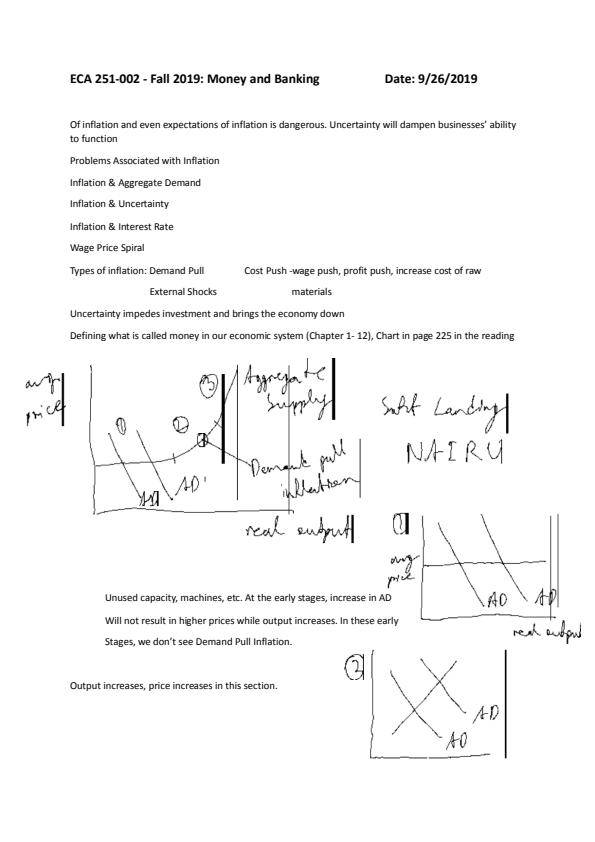 ECA 251-002 - Fall 2019: Money and Banking Date: 9/26/2019
Of inflation and even expectations of inflation is dangerous. Uncertainty will dampen businesses’ ability
to function
Problems Associated with Inflation
Inflation & Aggregate Demand
Inflation & Uncertainty
Inflation & Interest Rate
Wage Price Spiral
Types of inflation: Demand Pull Cost Push -wage push, profit push, increase cost of raw
External Shocks materials
Uncertainty impedes investment and brings the economy down
Defining what is called money in our economic system (Chapter 1- 12), Chart in page 225 in the reading
avg
price
①
②
③
Aggregate
Supply
AD
AD'
Demand pull
inflation
real output
Soft Landing
NAIRU
1
avg
price
AD
AD
real output
Unused capacity, machines, etc. At the early stages, increase in AD
Will not result in higher prices while output increases. In these early
Stages, we don’t see Demand Pull Inflation.
Output increases, price increases in this section.
②
AD
AD